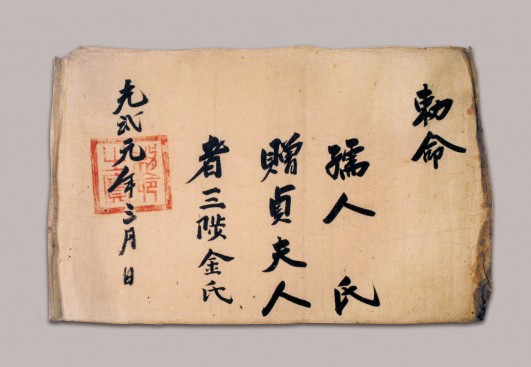 勅命
孺人 氏
贈貞夫人
者三階金氏
光武元年三月 日
勅命之寶